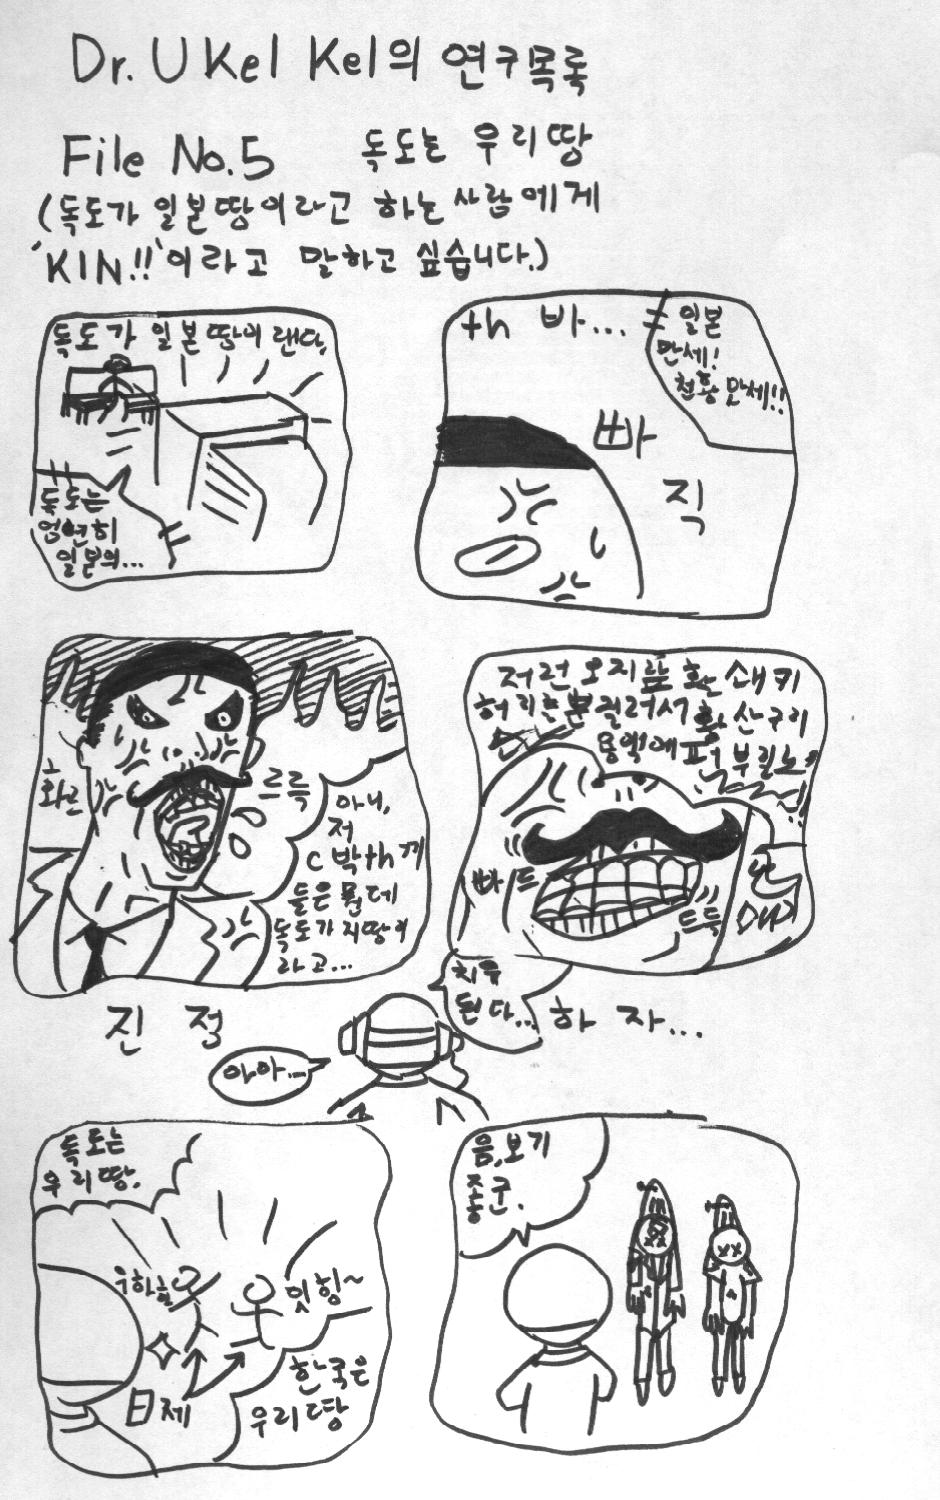 Dr. UKel Kel의 연구목록
File No.5 독도는 우리땅
(독도가 일본땅이라고 하는 사람에게
'KIN!!'이라고 말하고 싶습니다.)
독도가 일본땅이랜다.
독도는
엄연히
일본의...
th 바...
일본
만세!
천황만세!!
빠
직
화르
르륵
아니,
저
C박th끼
들은 뭔데
독도가 지땅이
라고...
저런 오지랖 환 새키
허리는 분질러서 황산구리
용액에 퍽
빠드
드득
진정
하자...
치유
된다...
아아...
독도는
우리땅.
우하핫
힛힝~
日제
한국은
우리땅
음,보기
좋군.